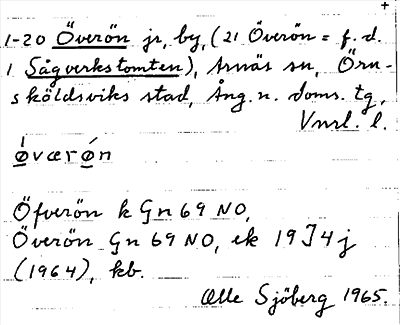 +
1-20 Överön jr, by, (21 Överön = f.d.
1 Sågverkstomten), Arnäs sn, Örn-
sköldsviks stad, Ång. n. doms. tg,
Vnrl. l.
ǿværǿn
Öfverön k Gn 69 NO,
Överön Gn 69 NO, ek 19J4j
(1964), kb.
Olle Sjöberg 1965.